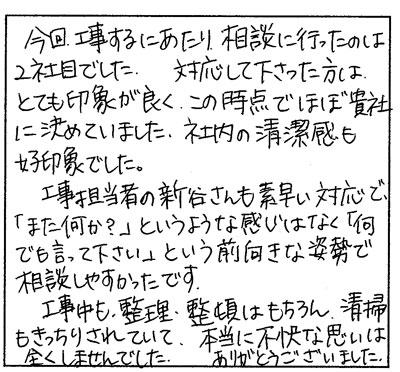 今回工事するにあたり 相談に行ったのは
2社目でした. 対応して下さった方は
とても印象が良く、この時点でほぼ貴社
に決めていました. 社内の清潔感も
好印象でした。
工事担当者の新谷さんも素早い対応で、
「また何か?」というような感じはなく「何
でも言って下さい」という前向きな姿勢で
相談しやすかったです.
工事中も、整理・整頓はもちろん、清掃
もきっちりされていて、本当に不快な思いは
全くしませんでした. ありがとうございました.